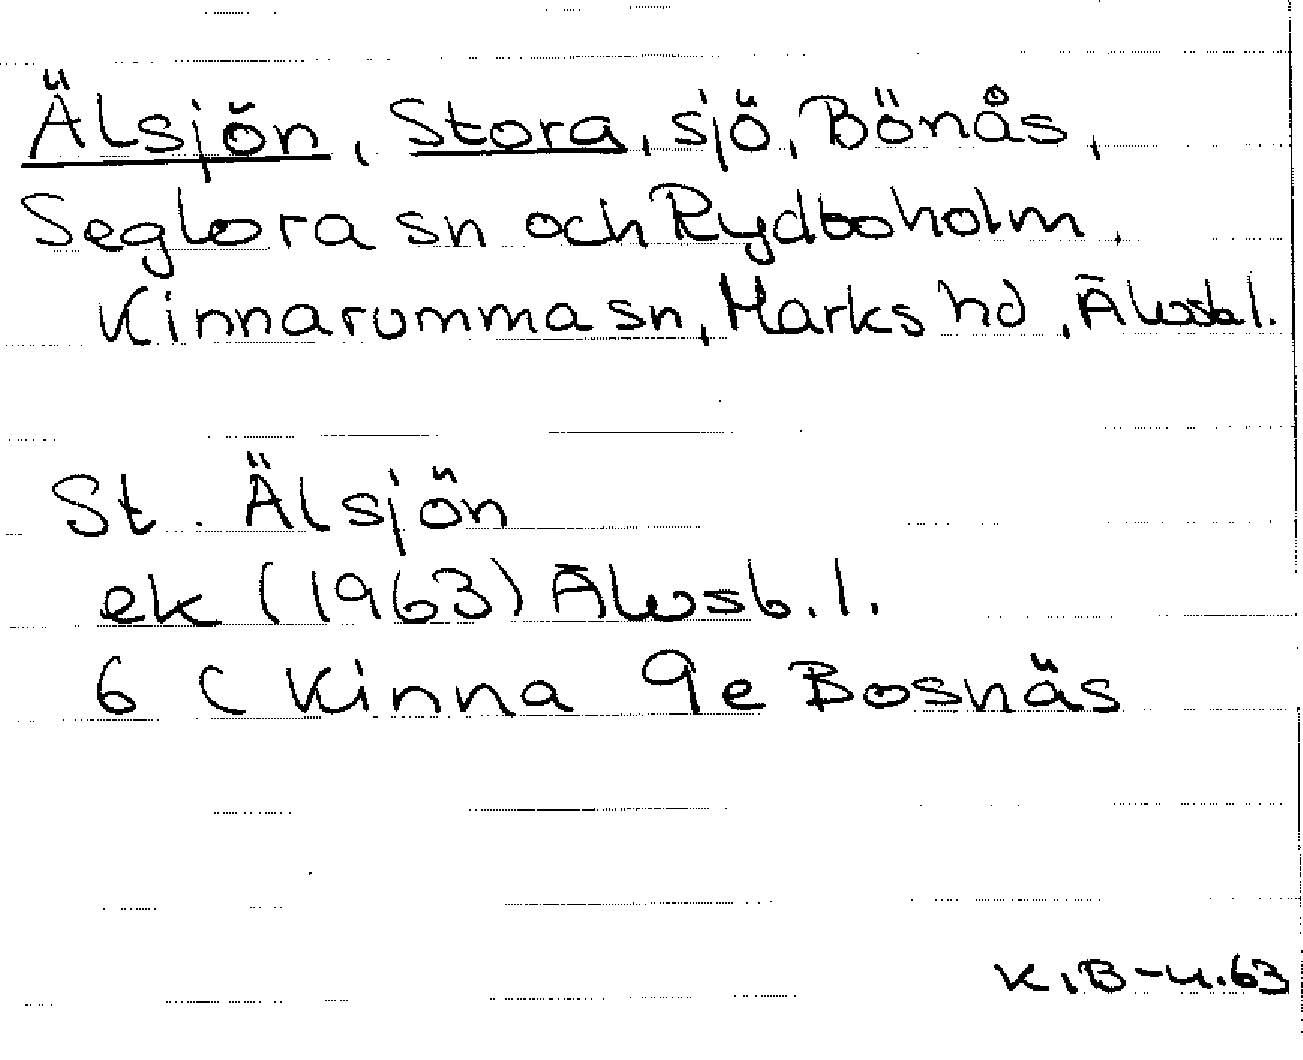 Älsjön, Stora, sjö, Bönås,
Seglora sn och Rydboholm,
Kinnarumma sn, Marks hd, Älvsb l.
St. Älsjön
ek (1963) Älvsb. l.
6 C Kinna 9e Bosnäs
K.B-u.63